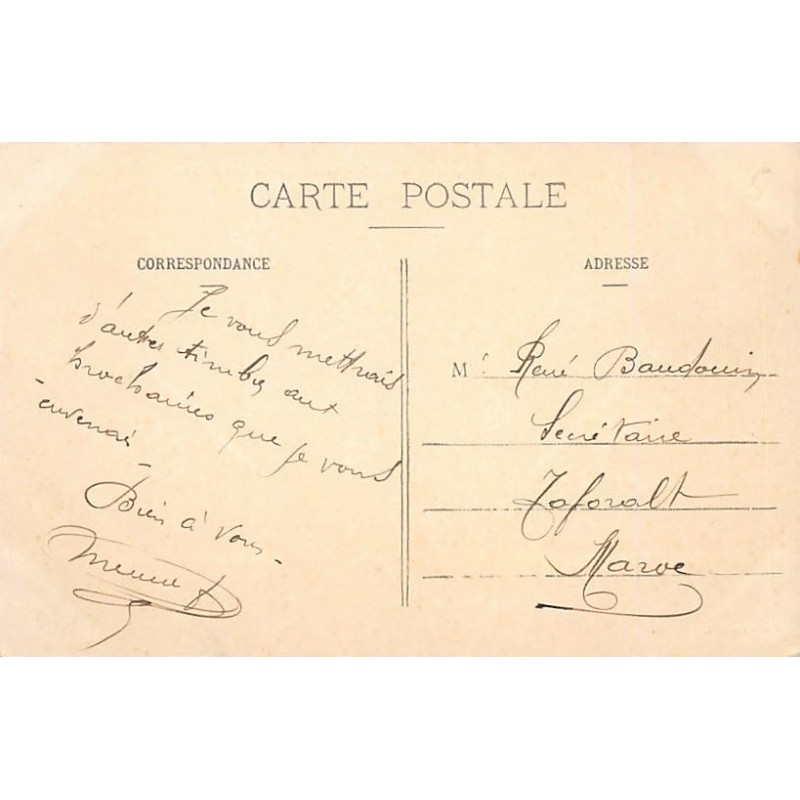 CARTE POSTALE
CORRESPONDANCE
Je vous mettrais
d'autres timbres aux
prochaines que je vous
enverrai -
Bien à vous -
ADRESSE
Mr René Baudouin
Secrétaire
Taforalt
Maroc
5